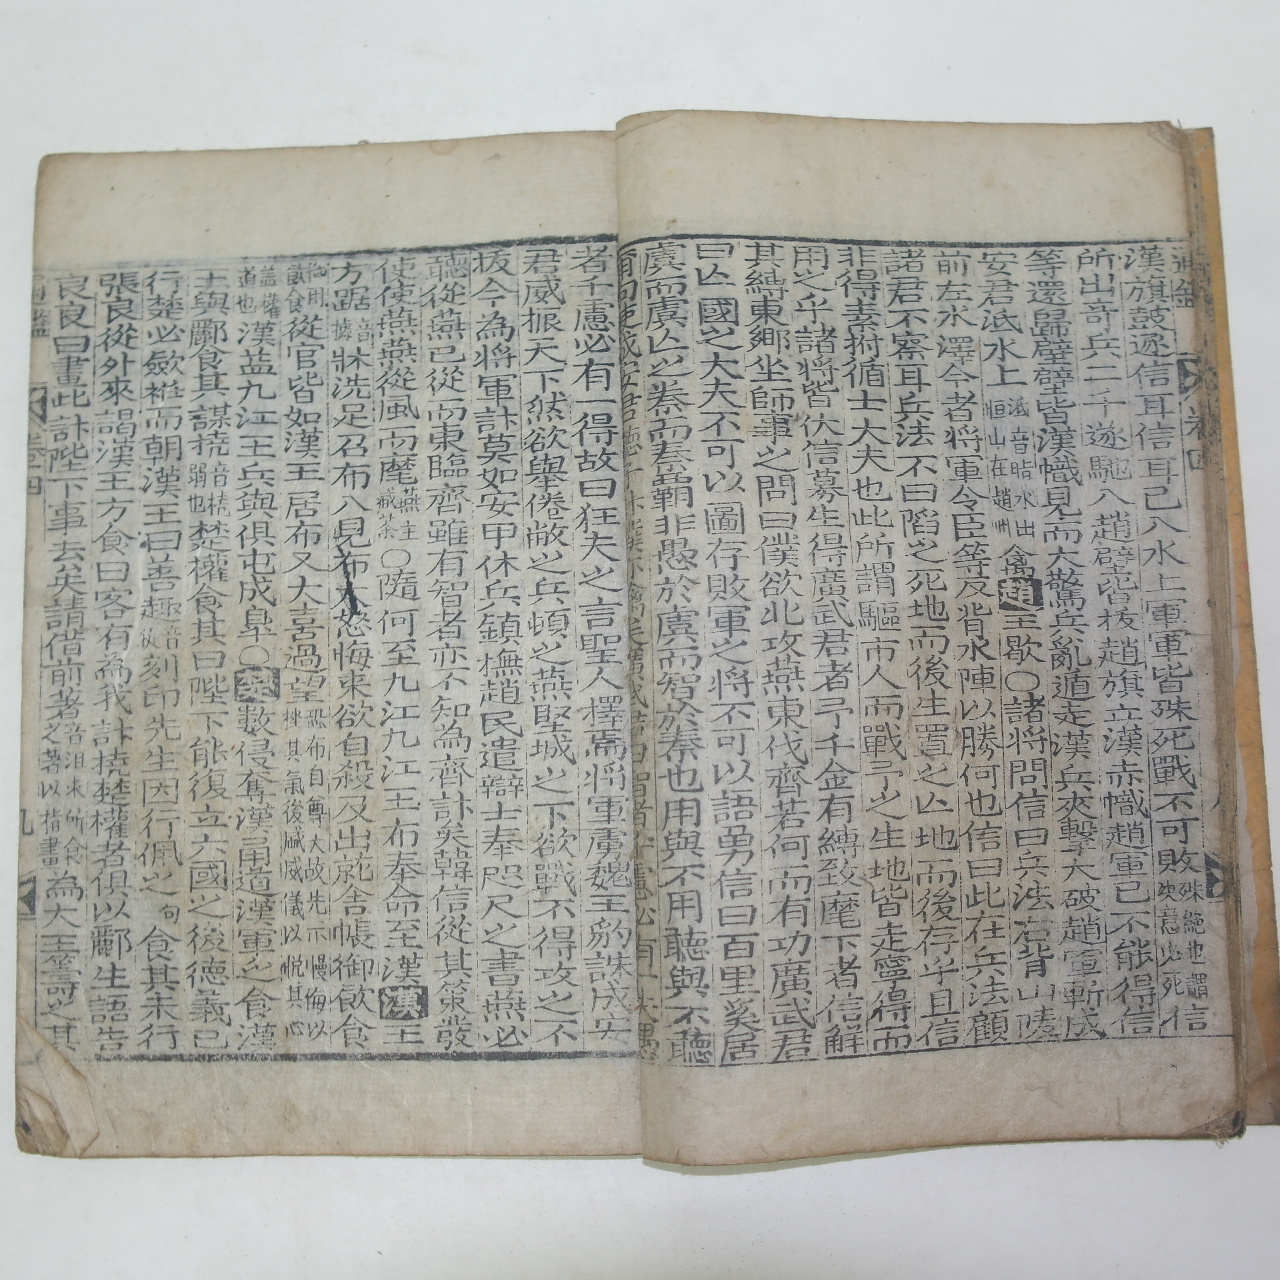 通鑑 卷四 八
漢旗鼓逐信耳信耳已入水上軍軍皆殊死戰不可敗殊絶也謂決意必死信
所出奇兵二千遂馳入趙壁皆拔趙旗立漢赤幟趙軍已不能得信
等還歸壁壁皆漢幟見而大驚兵亂遁走漢兵夾擊大破趙軍斬成
安君泜水上泜音脂水出恒山在趙州禽趙王歇○諸將問信曰兵法右背山陵
前左水澤今者將軍令臣等反背水陣以勝何也信曰此在兵法顧
諸君不察耳兵法不曰陷之死地而後生置之亡地而後存乎且信
非得素拊循士大夫也此所謂驅市人而戰予之生地皆走寧得而
用之乎諸將皆伏信募生得廣武君者予千金有縛致麾下者信解
其縛東鄕坐師事之問曰僕欲北攻燕東伐齊若何而有功廣武君
曰亡國之大夫不可以圖存敗軍之將不可以語勇信曰百里奚居
虞而虞亡之秦而秦覇非愚於虞而智於秦也用與不用聽與不聽
者千慮必有一得故曰狂夫之言聖人擇焉將軍虜魏王豹誅成安
君威振天下然欲擧倦敝之兵頓之燕堅城之下欲戰不得攻之不
拔今為將軍計莫如安甲休兵鎮撫趙民遣辯士奉咫尺之書燕必
聽從燕已從而東臨齊雖有智者亦不知為齊計矣韓信從其策發
使使燕燕從風而靡燕主臧荼○隨何至九江九江王布奉命至漢漢王
方踞音據牀洗足召布入見布大怒悔來欲自殺及出就舍帳御飮食
飮食從官皆如漢王居布又大喜過望恐布自尊大故先示慢侮以挫其氣後減威儀以悅其心
道也漢益九江王兵與俱屯成臯○楚數侵奪漢甬道漢軍乏食漢
王與酈食其謀撓音橈弱也楚權食其曰陛下能復立六國之後德義已
行楚必斂袵而朝漢王曰善趣音促刻印先生因行佩之句食其未行
張良從外來謁漢王方食曰客有為我計撓楚權者俱以酈生語告
良良曰畫此計陛下事去矣請借前著之著以指畫為大王籌之其
通鑑 卷四 九